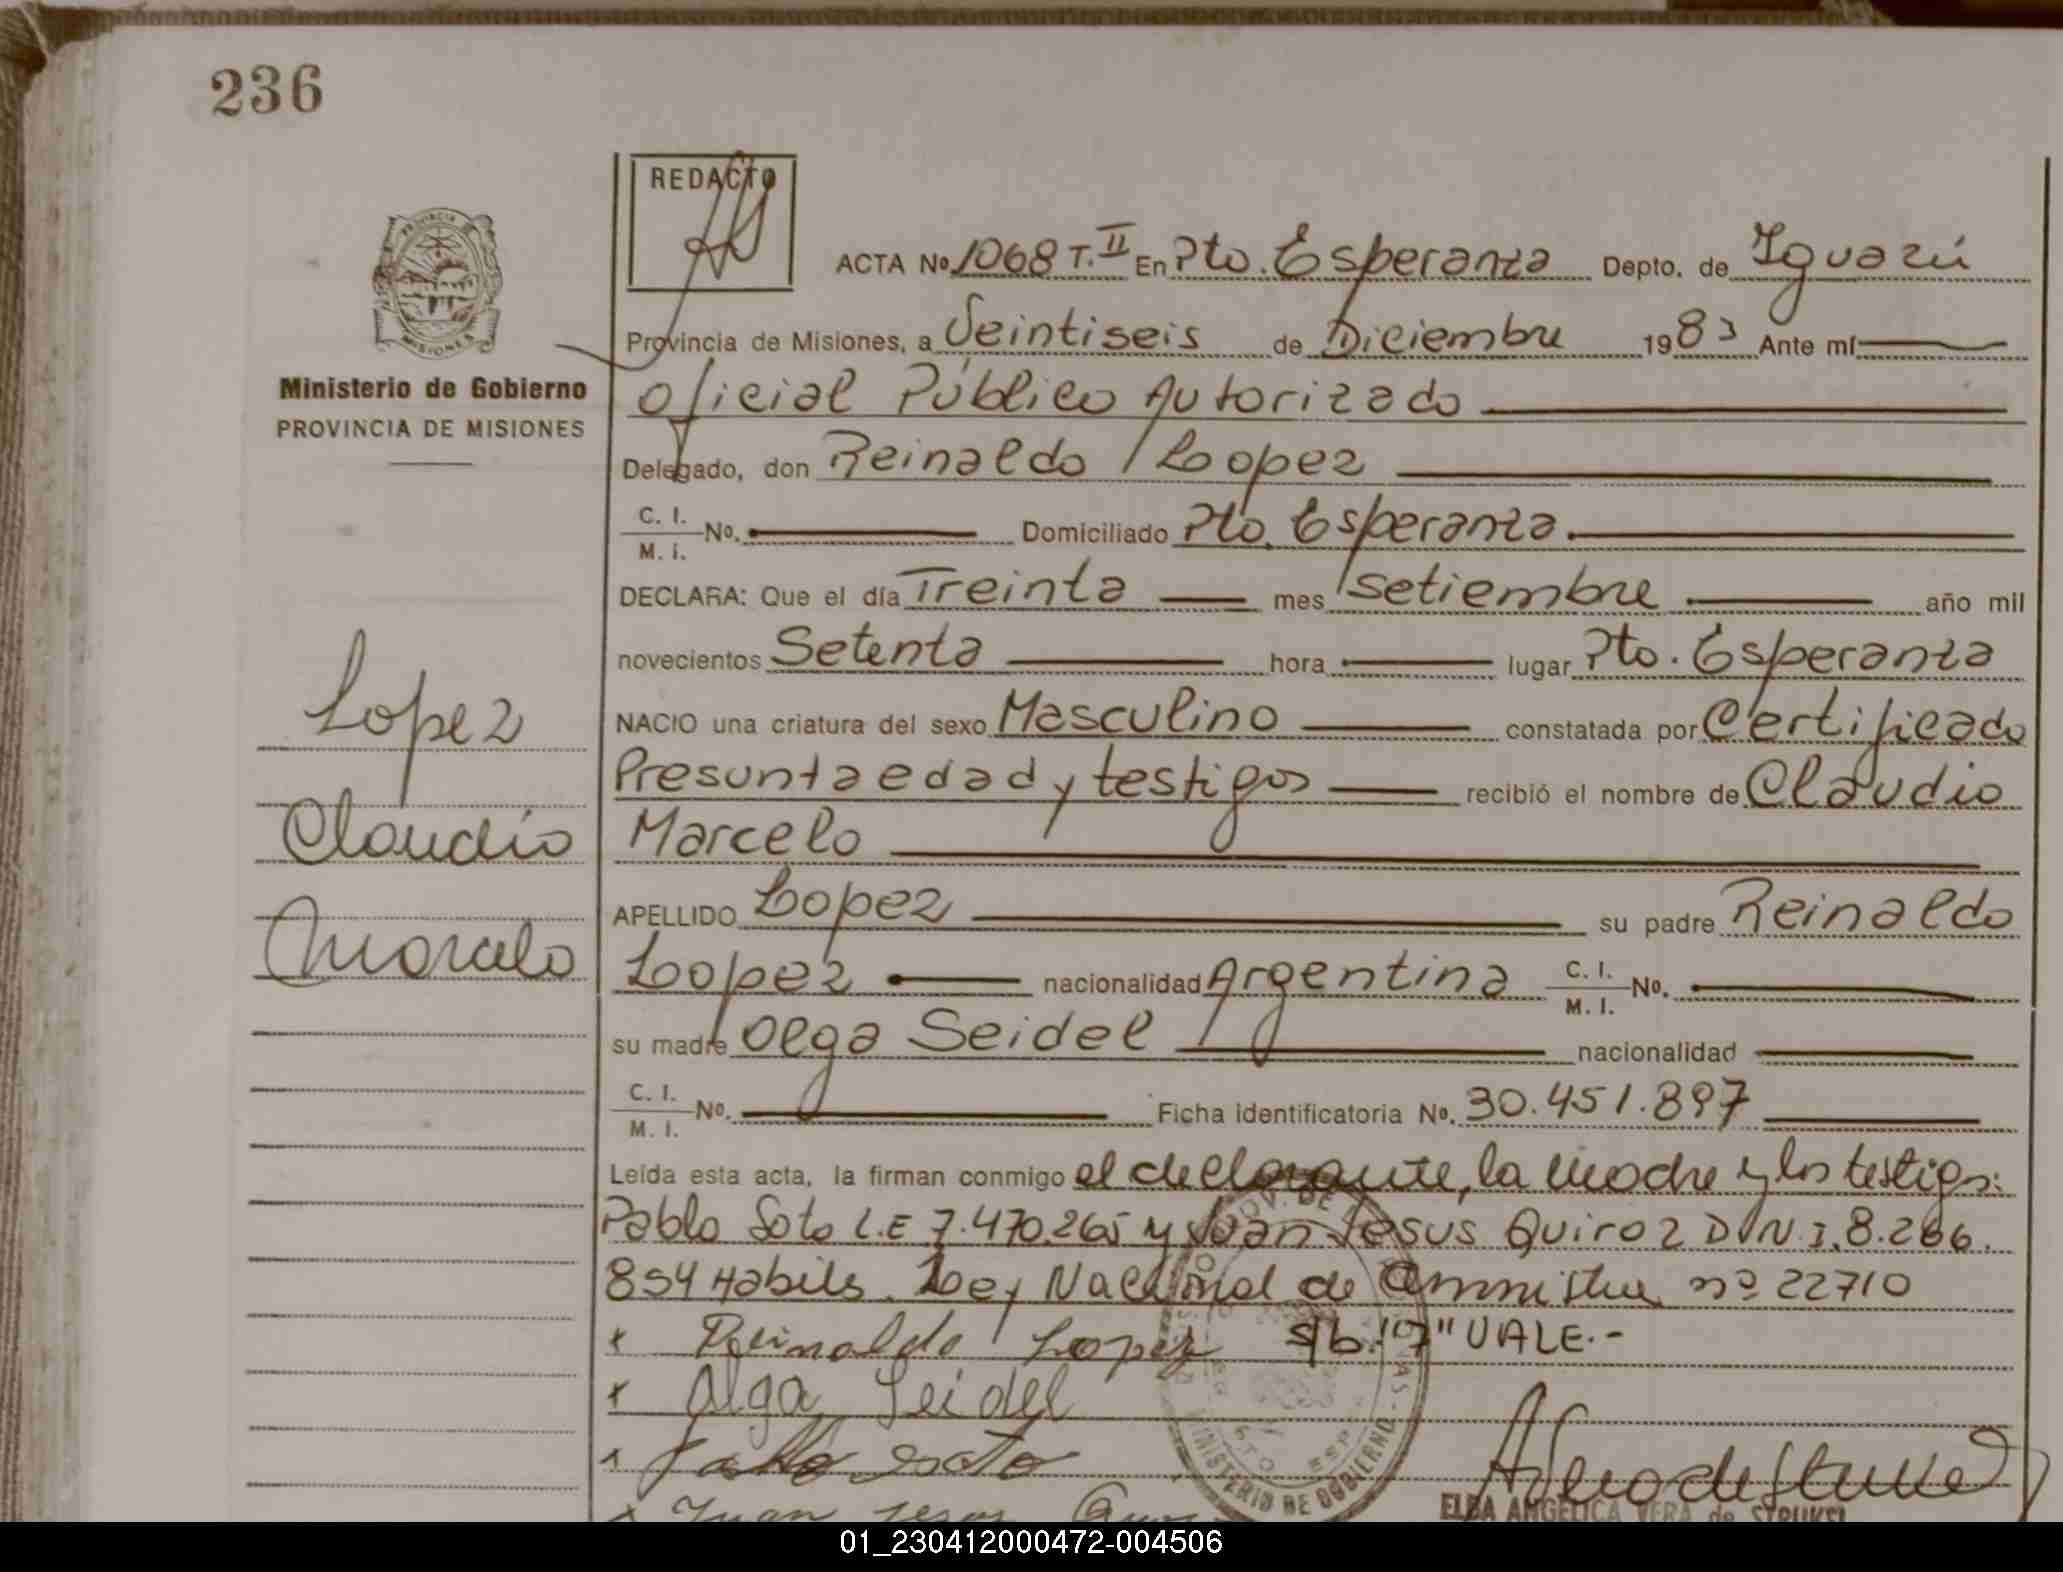 236
REDACTO
ACTA No. 1068 T. II En Pto. Esperanza Depto. de Iguazú
PROVINCIA
MISIONES
Provincia de Misiones, a Veintiseis de Diciembre 1983 Ante mí
Ministerio de Gobierno
PROVINCIA DE MISIONES
Oficial Público Autorizado
Delegado, don Reinaldo Loopez
C. I. M. I. No. Domiciliado Pto. Esperanza.
DECLARA: Que el día Treinta mes setiembre año mil
novecientos Setenta hora lugar Pto. Esperanza
Lopez
NACIO una criatura del sexo Masculino constatada por Certificado
Presunta edad y testigos recibió el nombre de Claudio
Claudio
Marcelo
Marcelo
APELLIDO Lopez su padre Reinaldo
Lopez nacionalidad Argentina C. I. M. I. No.
su madre Olga Seidel nacionalidad
C. I. M. I. No. Ficha identificatoria No. 30.451.897
Leída esta acta, la firman conmigo el declarante, la madre y los testigos:
Pablo Soto L.E 7.470.265 y Juan Jesus Quiroz D.N.I. 8.266.
854 Habiles. Ley Nacional de Amnistia nº 22710
x Reinaldo Lopez s/b. "7" VALE.-
x Olga Seidel
x Pablo Soto
x Juan Jesus
MINISTERIO DE GOBIERNO
ELBA ANGELICA VERA de STRUKSI
01_230412000472-004506